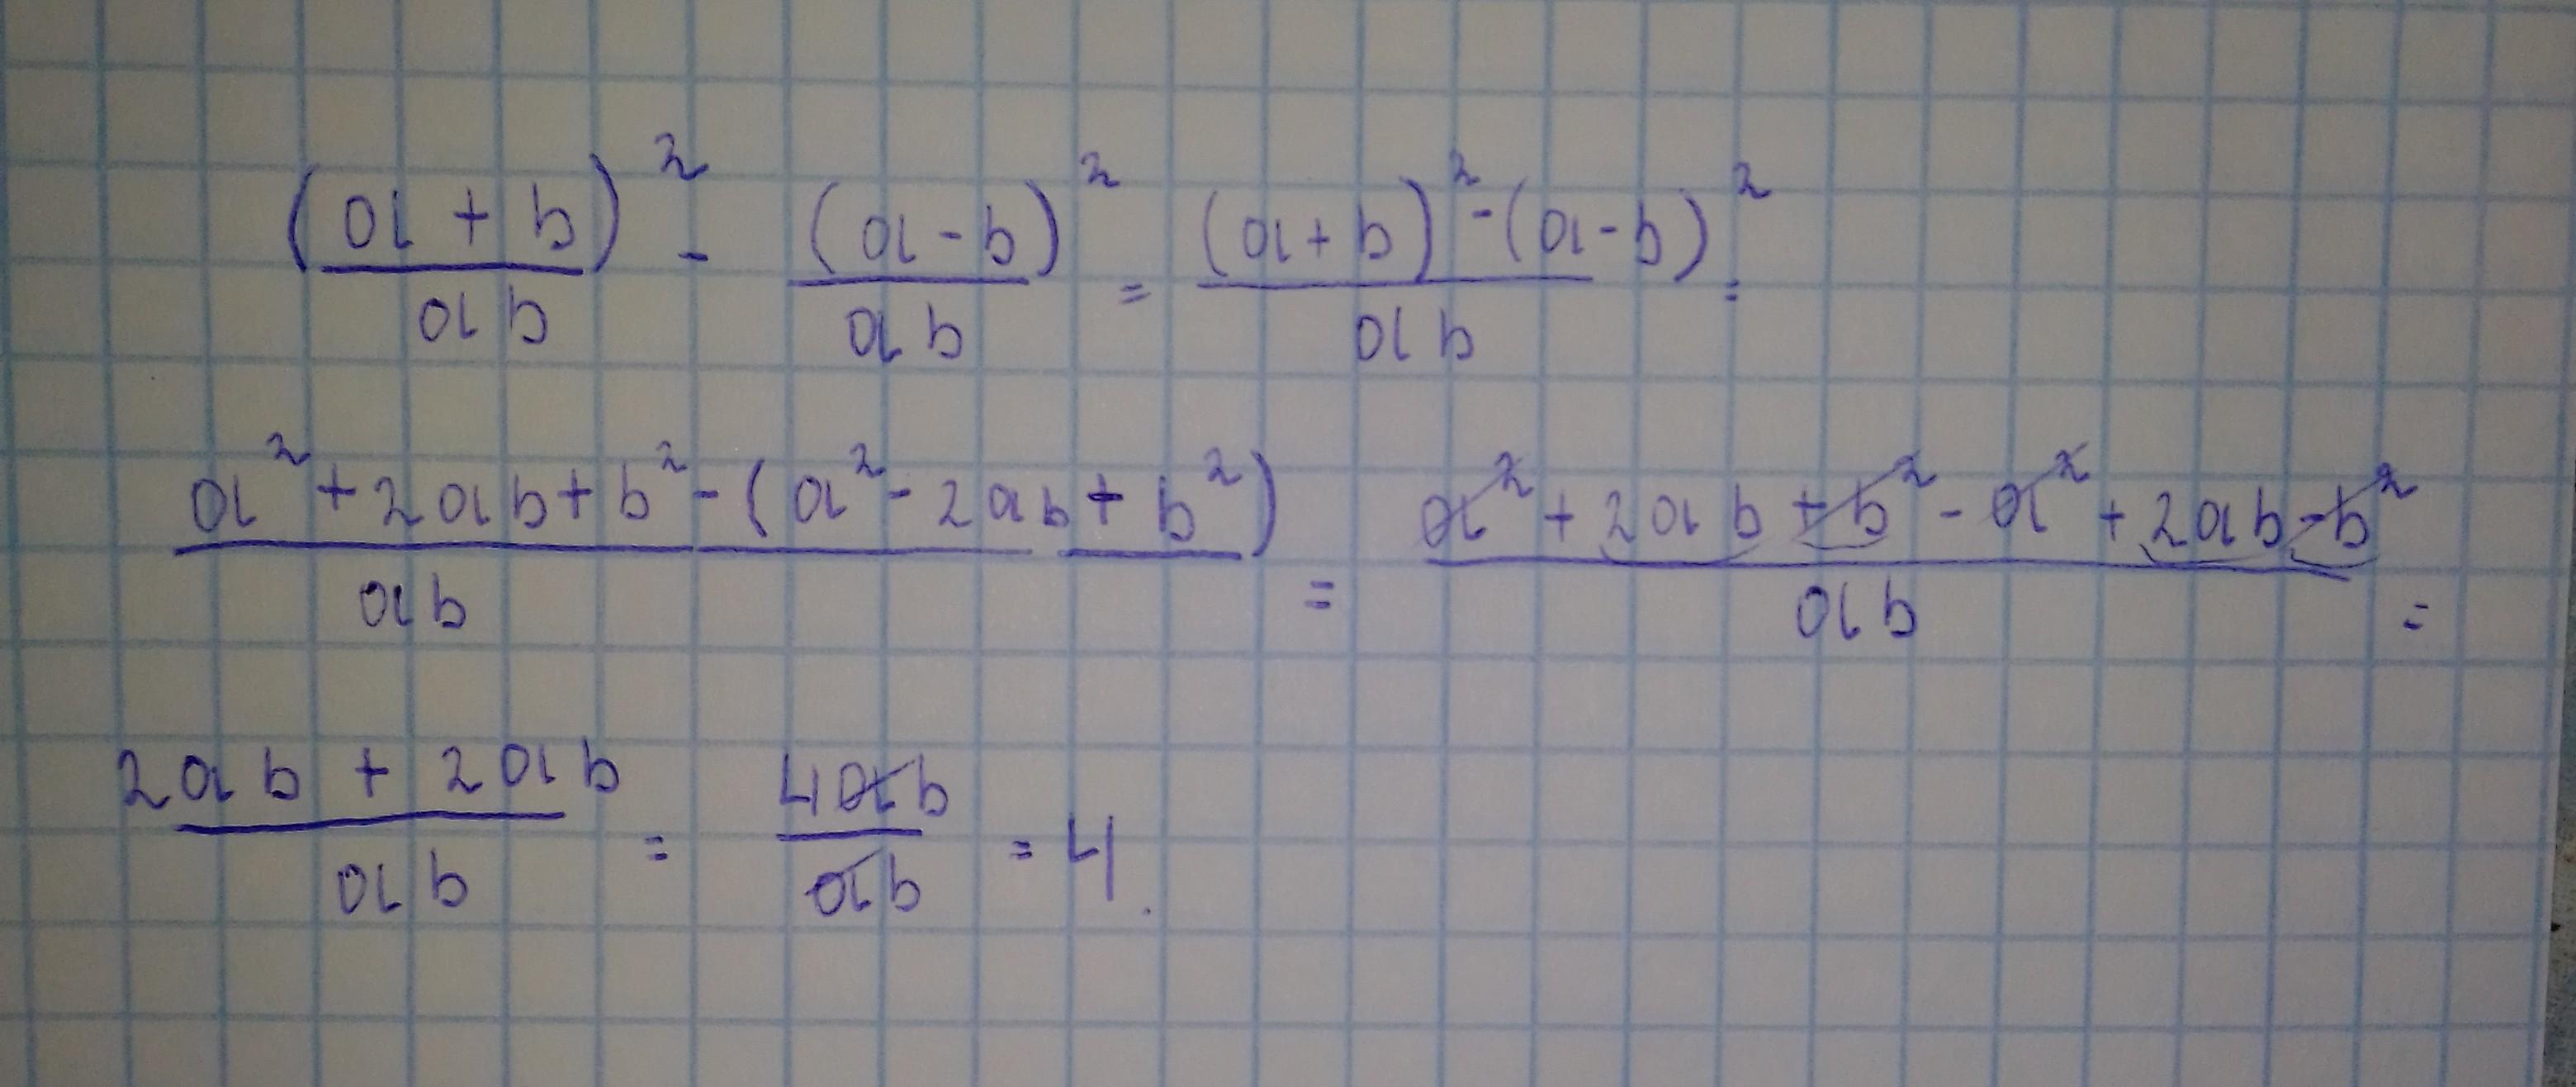 (a + b)² / ab - (a - b)² / ab = ((a + b)² - (a - b)²) / ab =
(a² + 2ab + b² - (a² - 2ab + b²)) / ab = (a² + 2ab + b² - a² + 2ab - b²) / ab =
(2ab + 2ab) / ab = 4ab / ab = 4.